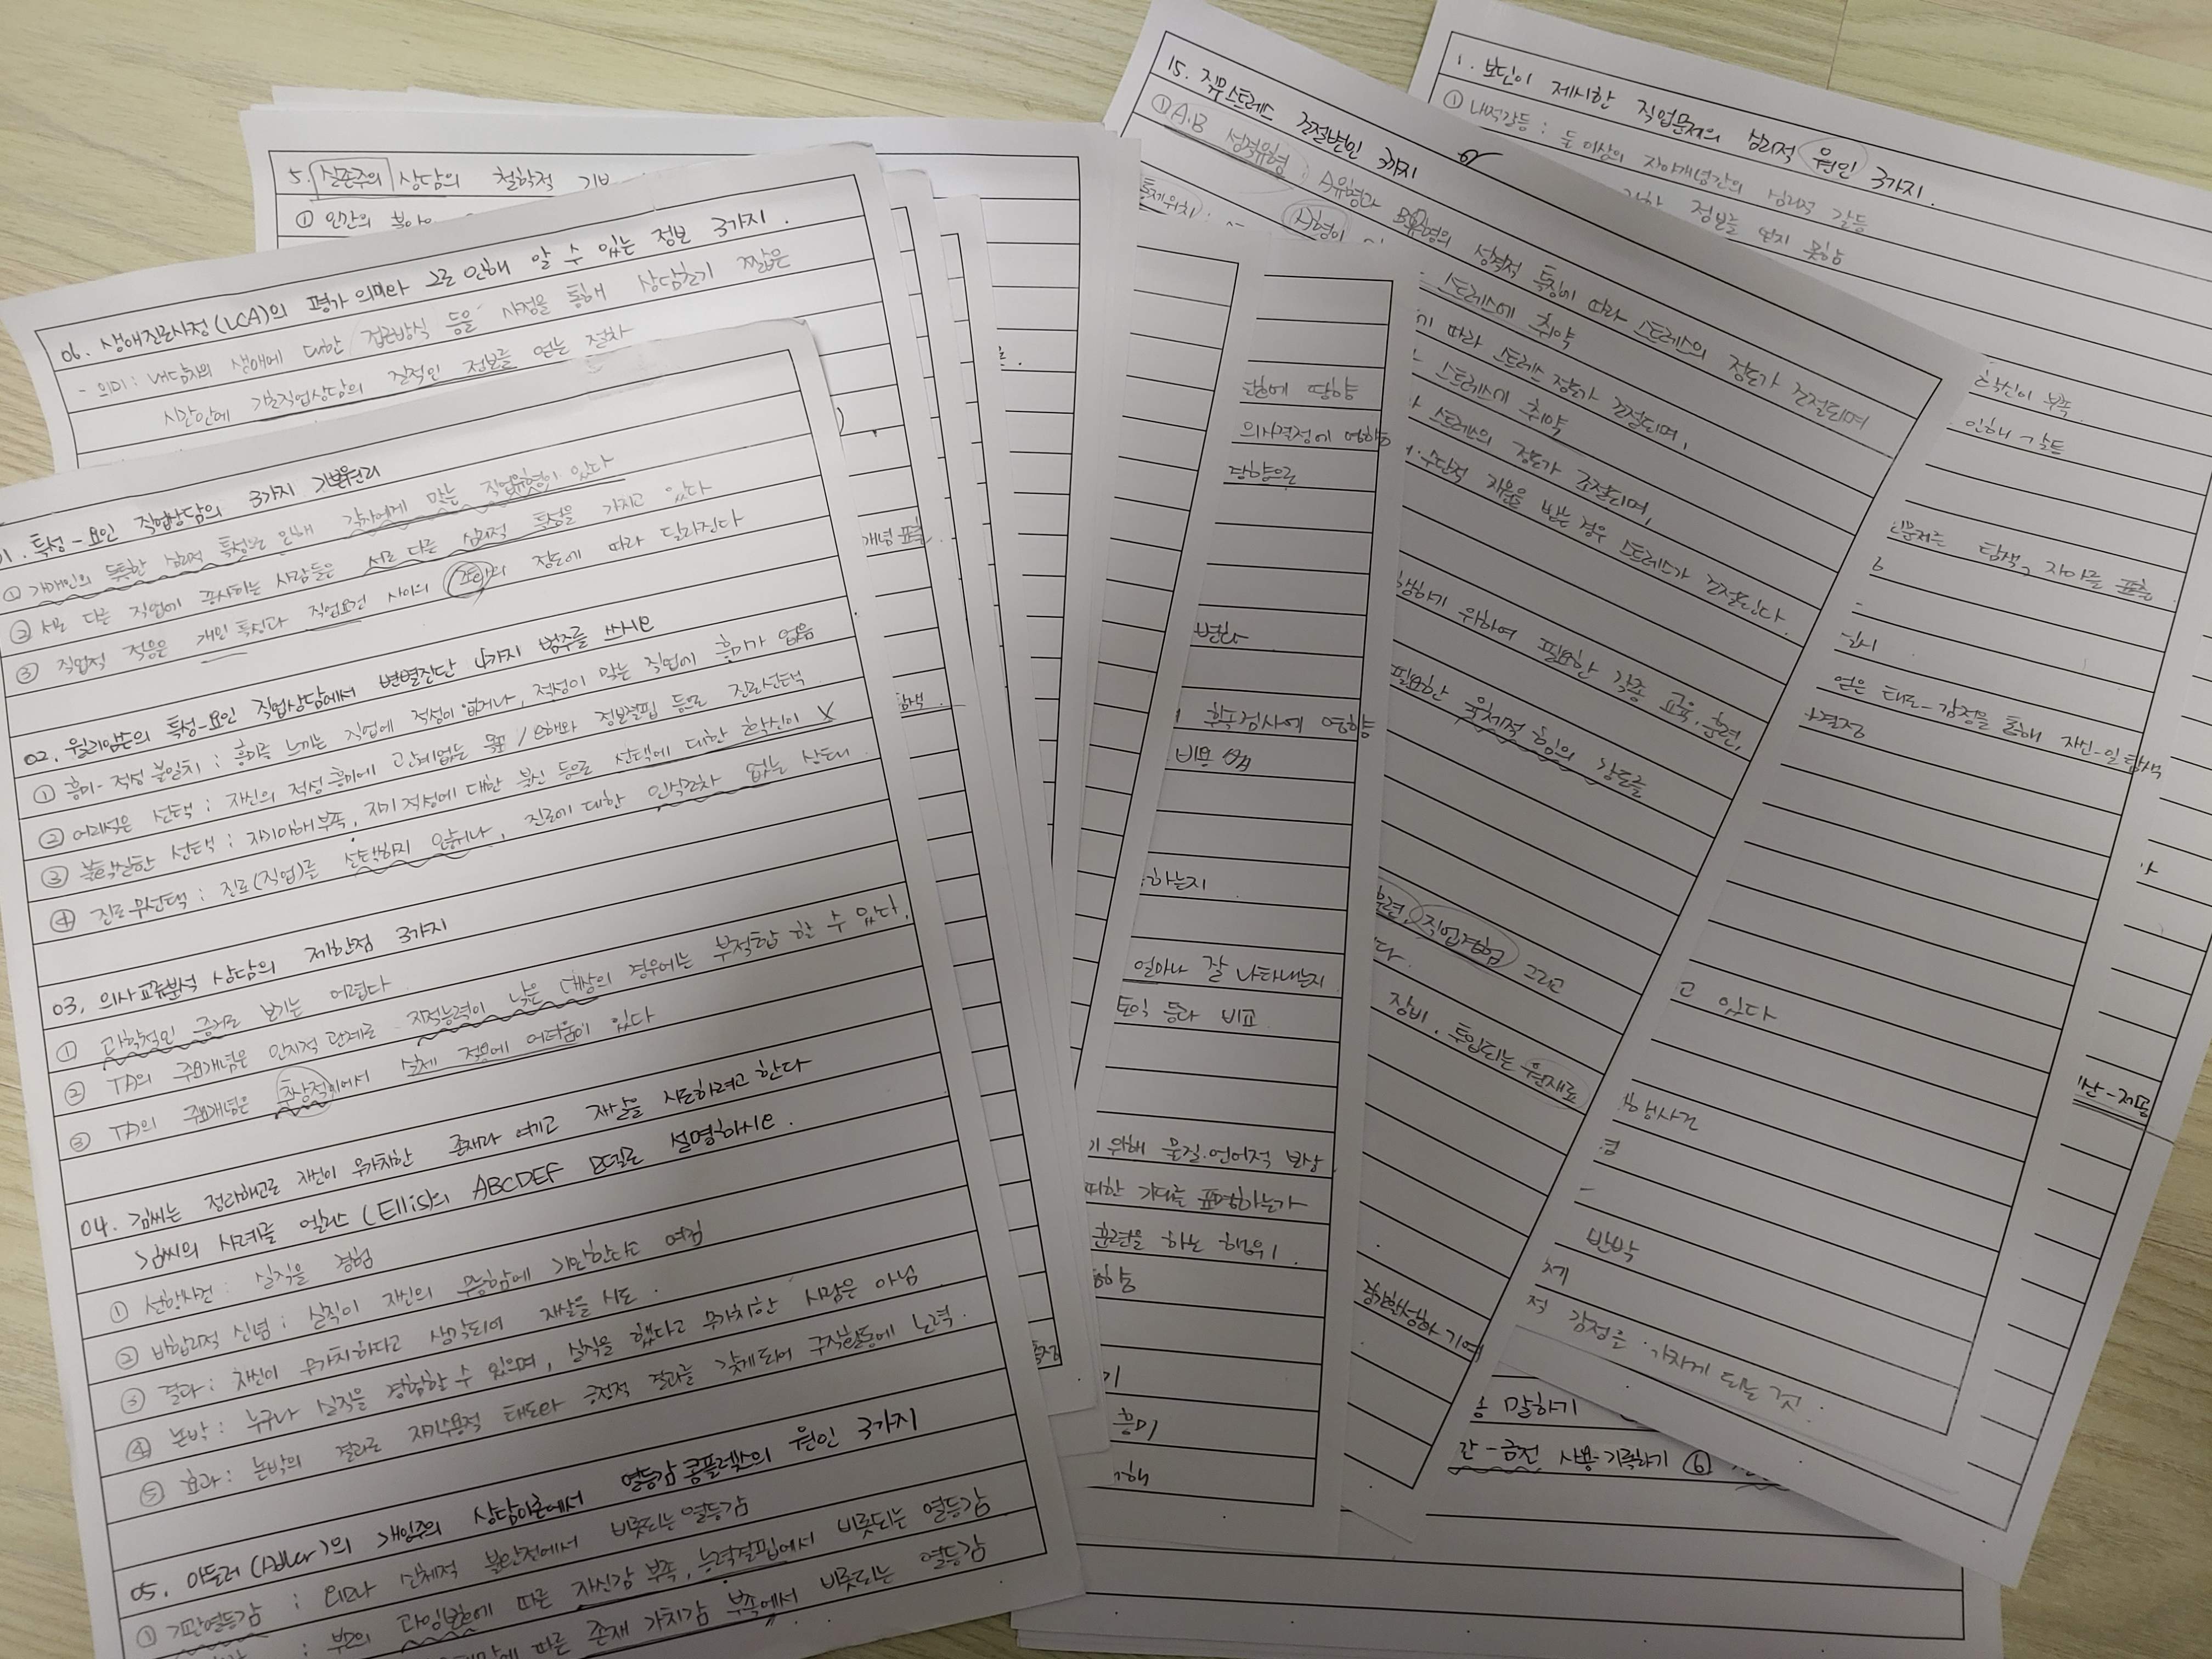 01. 특성-요인 직업상담의 3가지 기본원리
① 개개인의 독특한 심리적 특성으로 인해 각자에게 맞는 직업유형이 있다
② 서로 다른 직업에 종사하는 사람들은 서로 다른 심리적 특성을 가지고 있다
③ 직업적 적응은 개인 특성과 직업요건 사이의 조화의 정도에 따라 달라진다
02. 윌리암슨의 특성-요인 직업상담에서 변별진단 4가지 범주를 쓰시오
① 흥미-적성 불일치 : 흥미를 느끼는 직업에 적성이 없거나, 적성이 맞는 직업에 흥미가 없음
② 어리석은 선택 : 자신의 적성 흥미에 관계없는 목표 / 오해와 정보결핍 등으로 진로선택
③ 불확실한 선택 : 자기이해부족, 자기 적성에 대한 불신 등으로 선택에 대한 확신이 X
④ 진로 무선택 : 진로(직업)를 선택하지 않거나, 진로에 대한 인식조차 없는 상태
03. 의사교류분석 상담의 제한점 3가지
① 과학적인 증거로 보기는 어렵다
② TA의 주요개념은 인지적 관계로 지적능력이 낮은 대상의 경우에는 부적합 할 수 있다.
③ TA의 주요개념은 추상적이어서 실제 적용에 어려움이 있다
04. 김씨는 정리해고로 자신이 무가치한 존재라 여기고 자살을 시도하려고 한다
김씨의 사례를 엘리스(Ellis)의 ABCDEF 모델로 설명하시오.
① 선행사건 : 실직을 경험
② 비합리적 신념 : 실직이 자신의 무능함에 기인한다고 여김
③ 결과 : 자신이 무가치하다고 생각되어 자살을 시도.
④ 논박 : 누구나 실직을 경험할 수 있으며, 실직을 했다고 무가치한 사람은 아님
⑤ 효과 : 논박의 결과로 자기수용적 태도와 긍정적 결과를 갖게되어 구직활동에 노력.
05. 아들러(Adler)의 개인주의 상담이론에서 열등감 콤플렉스의 원인 3가지
① 기관열등감 : 외모나 신체적 불완전에서 비롯되는 열등감
: 부모의 과잉보호에 따른 자신감 부족, 능력결핍에서 비롯되는 열등감
따른 존재 가치감 부족에서 비롯되는 열등감
06. 생애진로사정(LCA)의 평가 의미와 그로 인해 알 수 있는 정보 3가지.
- 의미 : 내담자의 생애에 대한 접근방식 등을 사정을 통해 상담초기 짧은
시간안에 기초직업상담의 질적인 정보를 얻는 절차
5. 실존주의 상담의 철학적 기본
① 인간의
개념 표출
탐색
단함에 땅향
의사결정에 영향
당향으로
변화
후속검사에 영향
비용
하는지
얼마나 잘 나타내는지
토익 등과 비교
기 위해 물질·언어적 보상
대한 기대를 표명하는가
훈련을 하는 행위
흥미
15. 직무스트레스 조절변인 3가지
① A·B 성격유형 : A유형과 B유형의 성격적 특징에 따라 스트레스의 정도가 조절되며
A유형이
스트레스에 취약
통제위치
따라 스트레스 정도가 조절되며,
스트레스에 취약
스트레스의 정도가 조절되며,
수단적 지원을 받는 경우 스트레스가 조절된다.
행하기 위하여 필요한 각종 교육, 훈련,
필요한 육체적 힘의 강도를
훈련, 직업경험 그리고
다.
장비, 투입되는 원재료
1. 보딘이 제시한 직업문제의 심리적 원인 3가지.
① 내적갈등 : 둘 이상의 자아개념간의 심리적 갈등
정보를 받지 못함
확신이 부족
인해 갈등
문제를 탐색, 자아를 표출
얻은 태도-감정을 통해 자신-일 탐색
고 있다
선행사건
반박
적 감정을 가지게 되는 것.
말하기
금전 사용 기록하기 ⑥